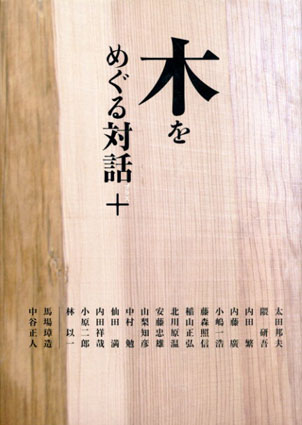 木を
めぐる対話
＋
太田邦夫
隈 研吾
内田 繁
内藤 廣
小嶋一浩
藤森照信
稲山正弘
北川原温
安藤忠雄
山梨知彦
中村 勉
仙田 満
内田祥哉
小原二郎
林 以一
馬場璋造
中谷正人